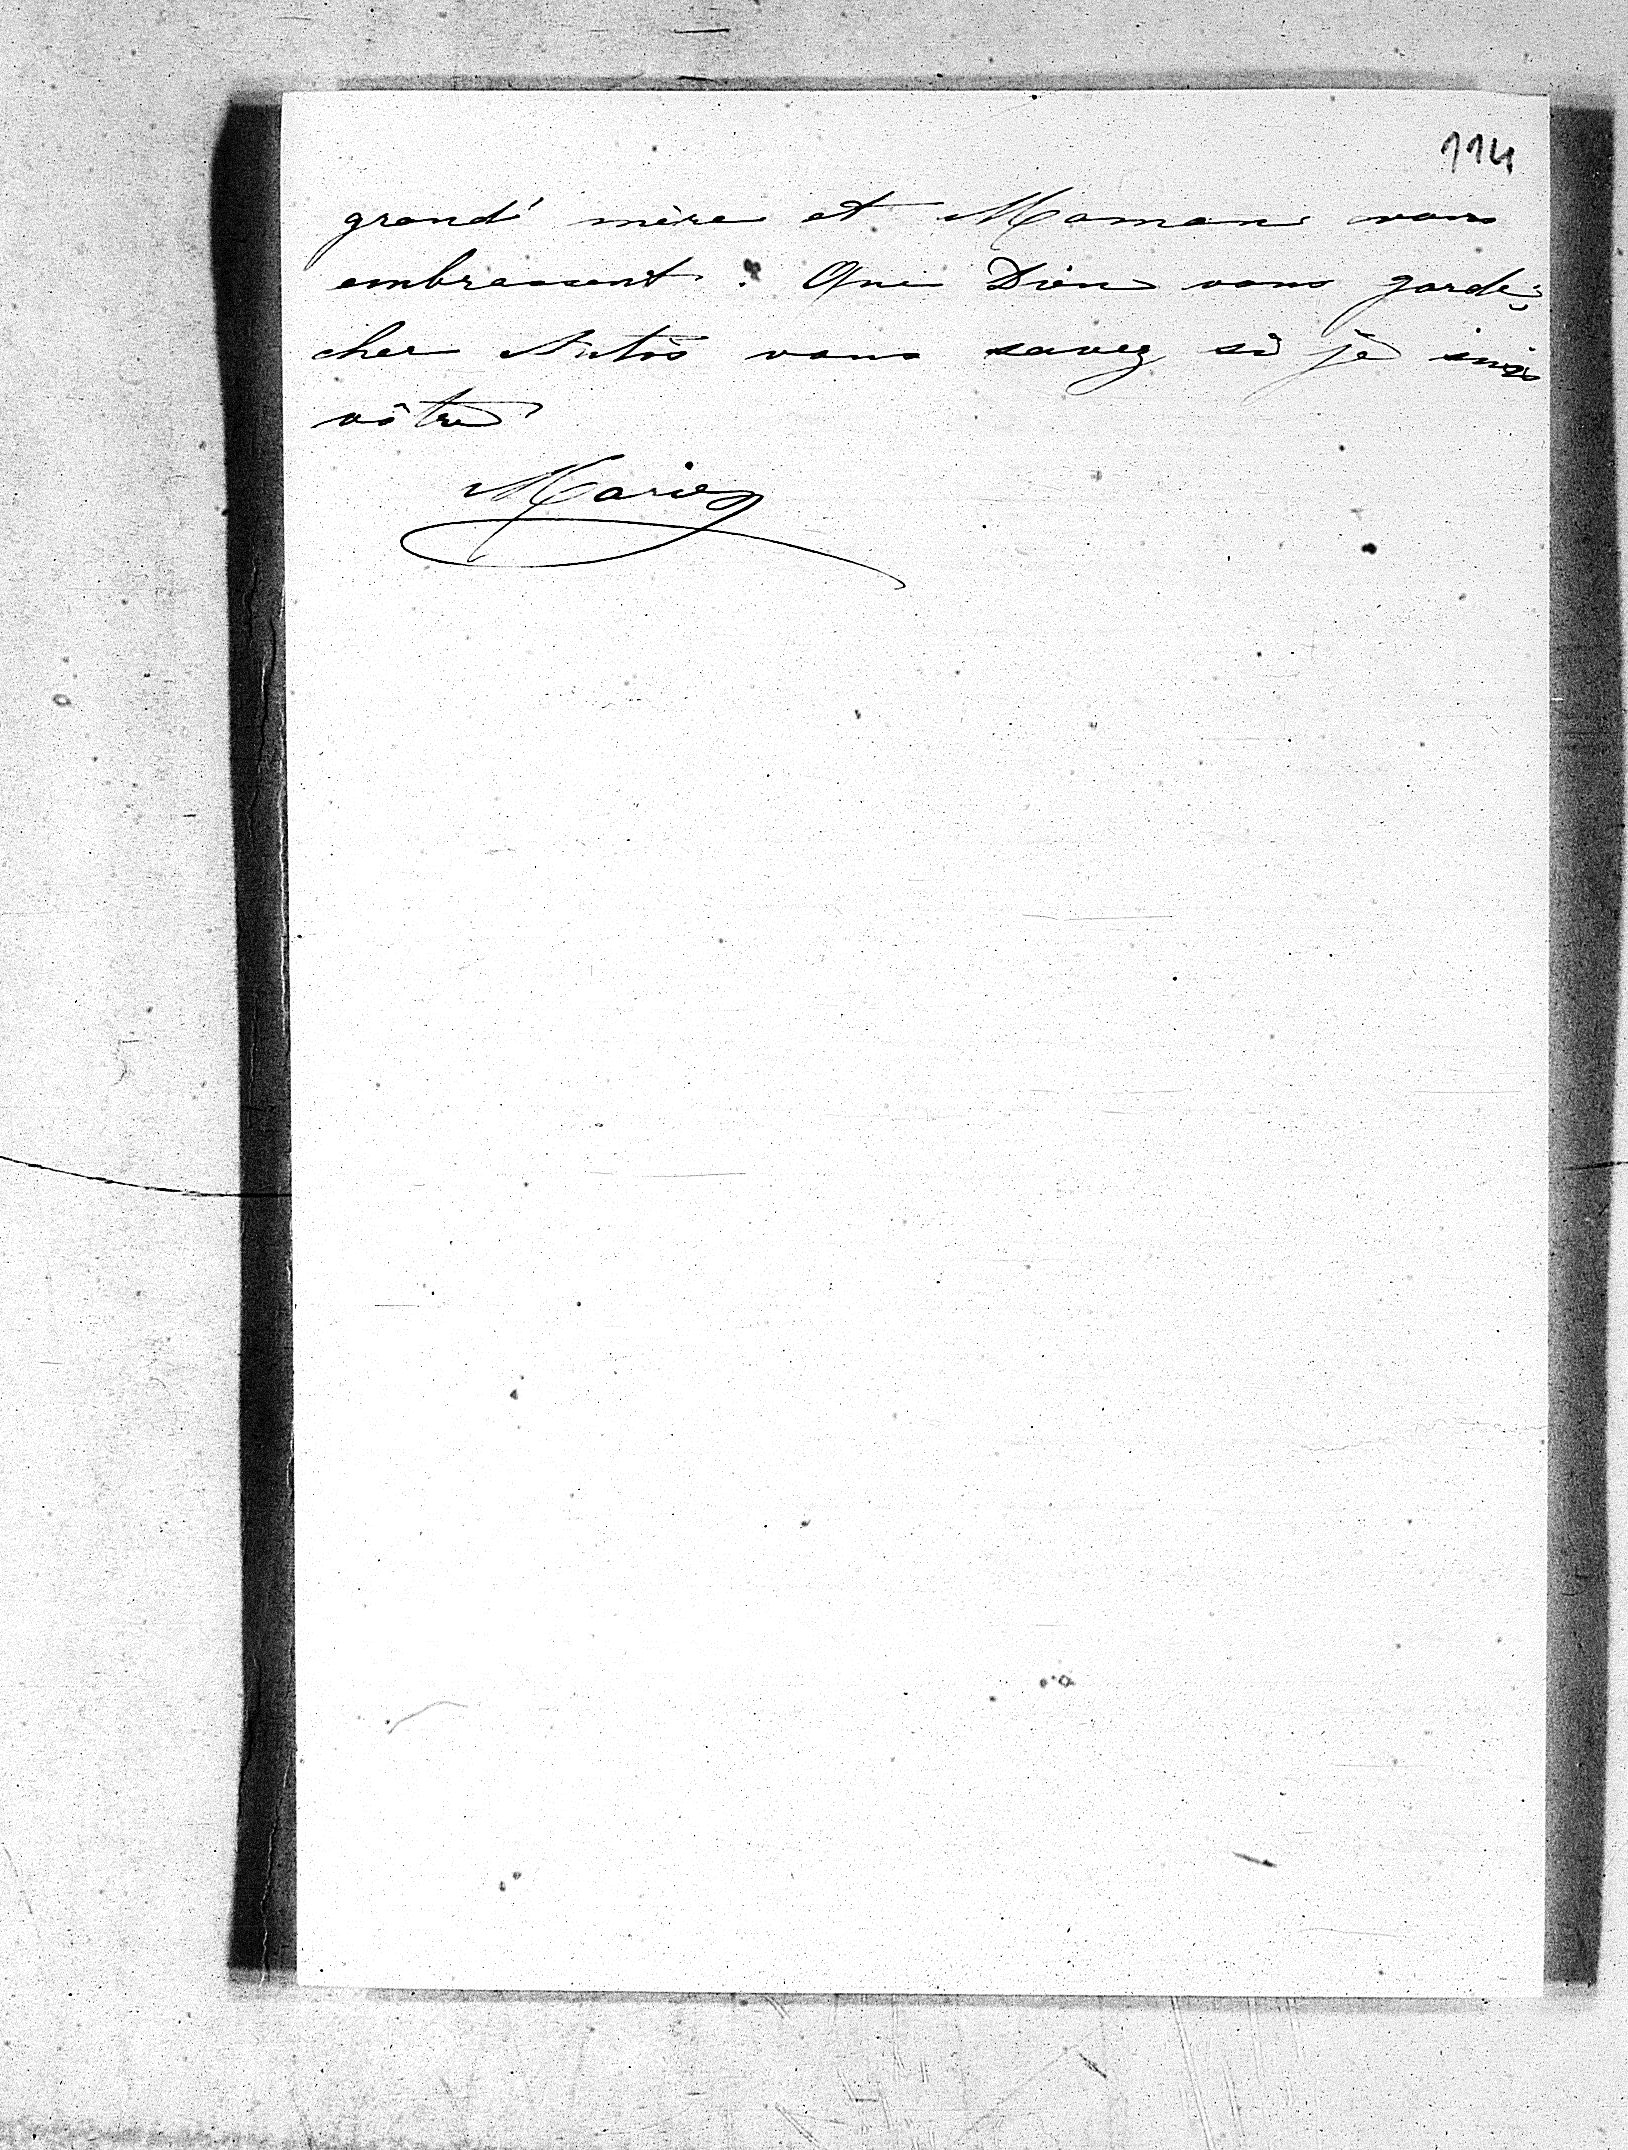 114
grand' mère et Maman vous
embrassent. Que Dieu vous garde,
cher Antos vous savez si je suis
vôtre
Marie